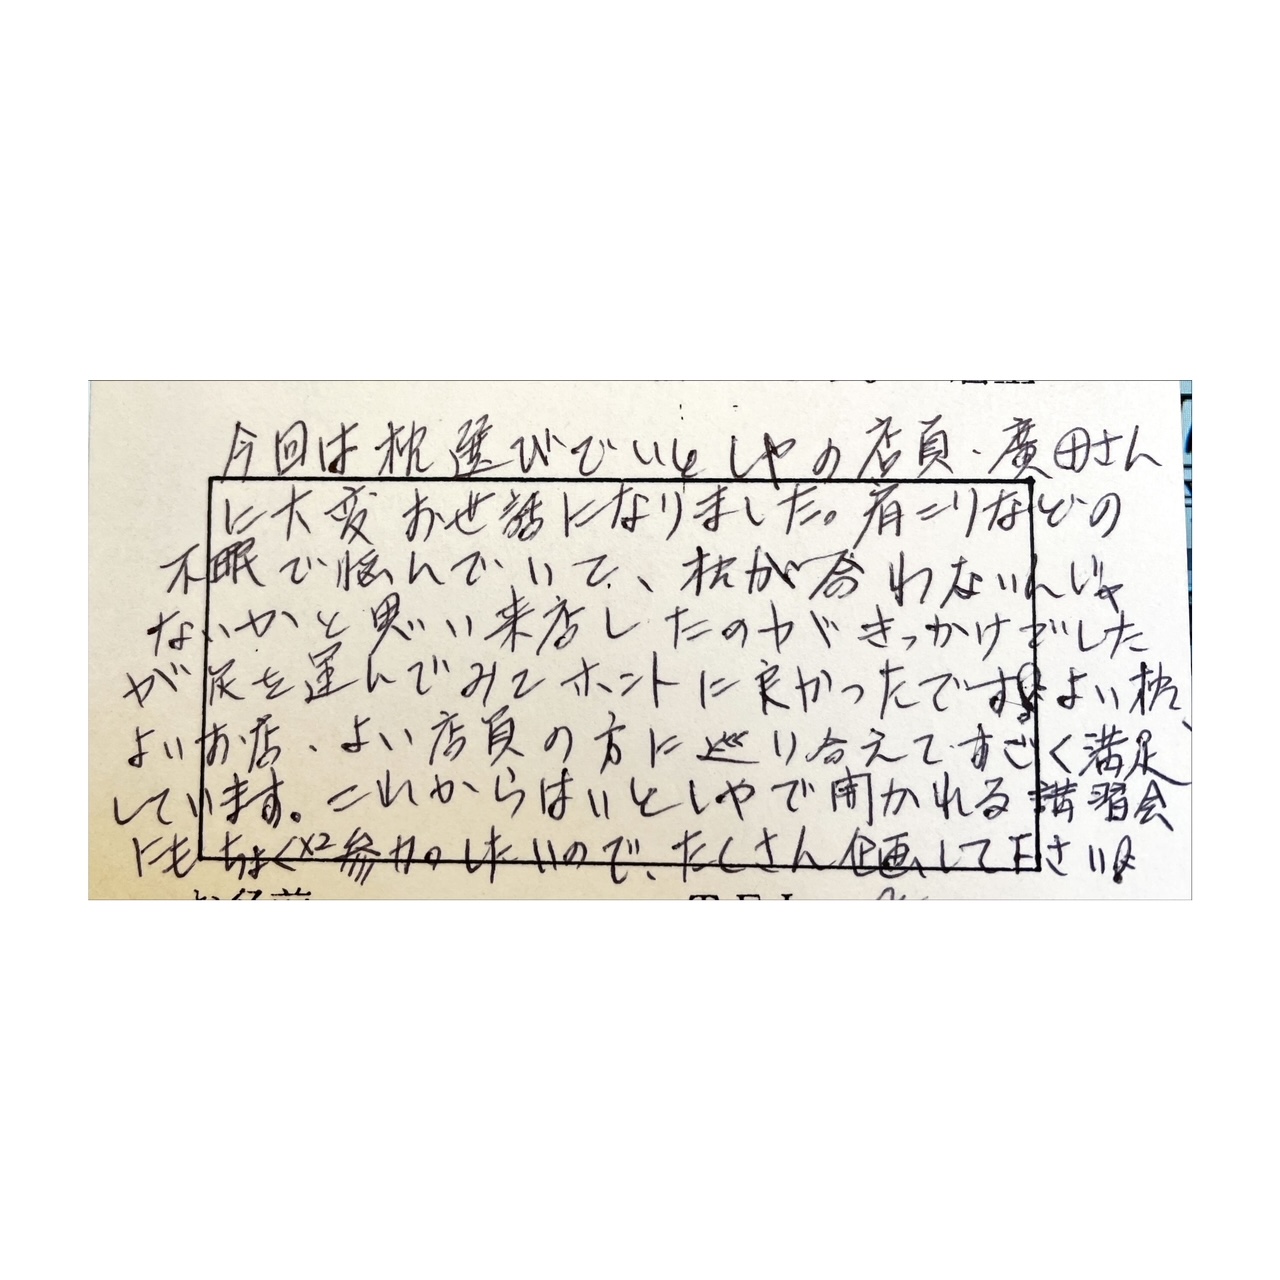 今回は枕選びでいとしやの店員・廣田さん
に大変お世話になりました。肩こりなどの
不眠で悩んでいて、枕が合わないんじゃ
ないかと思い来店したのがきっかけでした
が足を運んでみてホントに良かったです。よい枕、
よいお店、よい店員の方に巡り合えてすごく満足
しています。これからはいとしやで開かれる講習会
にもちょく×2参加したいので、たくさん企画して下さい
TEL